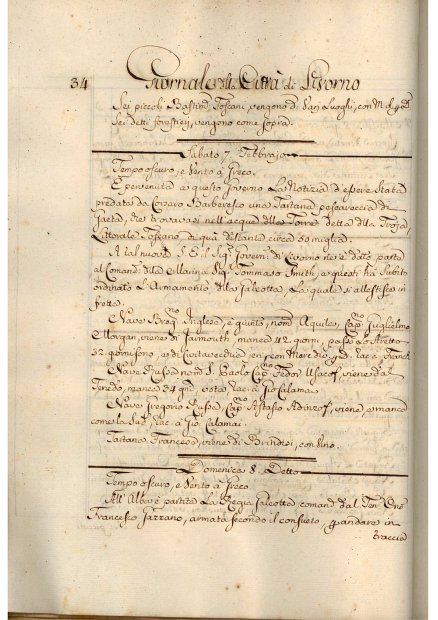 34 Giornale della Città di Livorno
Sei piccoli Bastim.ti Toscani, vengono di Varj Luoghi, con
Sei detti forestieri, vengono come sopra.
Sabato 7 Febbrajo
Tempo oscuro, e Vento a Greco.
È pervenuta a questo Governo La Notizia d'essere stata
predata da Corsaro Barbaresco una Tartana pescareccia di
Gaeta, che trovavasi nell'acque della Torre detta della Troja
Littorale Toscano di quà distante circa 50 miglia.
A tal nuova S. E. il Sig.r Govern. di Livorno ne ha dato parte
al Comand. della Marina Sig.r Tommaso Smith, e questi ha subito
ordinato L'Armamento della Galeotta, La quale si allestisce in
fretta.
Nave Inglese, è giunto, nom. Aquila, Cap.no Guglielmo
Morgan, viene di Falmouth, manca 42 giorni, passò Lo Stretto
32 giorni sono, e di Civitavecchia en con Mercanzie,
Nave Russa nom. S. Paolo Cap.no Fedor Usacof viene dal
Tenedo, manca 34 gni, vota rac. a Gio Calamai.
Nave Gregorio Russa, Cap.no Astasio Adinzof, viene, e manca
come la Sud.a, rac. a Gio Calamai.
Tartana Francese, viene di Brindisi, con Vino.
Domenica 8 Detto
Tempo oscuro, e Vento a Greco
All'Alba è partita La Regia Galeotta, comand. dal Ten.
Francesco Farrano, armata secondo il consueto, p andare in
traccia